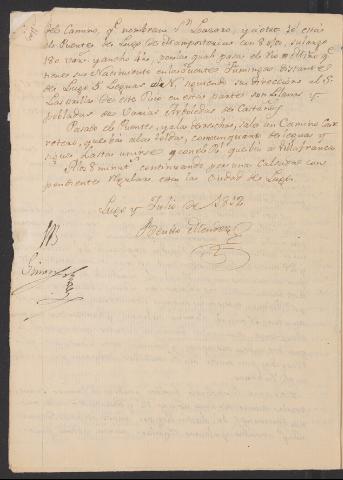 del Camino, qe nombran Sn Lazaro, y a otros 30 está
el Puente de Lugo de Mamposteria con 8 ojos, su largo
180 vars. y ancho 4½, por las qual pasa el Rio Miño qe
tiene su Nacimiento en las Fuentes distante
de Lugo 5 Leguas al N. siguiendo su direccion al S.
Las orillas de este Rio en esta parte son llanas y
pobladas de varias Arboledas de Castaños
Pasado el Puente, y a la derecha, sale un Camino Car-
retero, que va a las como un quarto de legua y
sigue hasta unirse con el Rl que va a Villafranca
A los 8 minuts continuando por una Calzada con
pendientes regulares esta la Ciudad de Lugo.
Lugo y Julio de 1802
Benito Mendoza